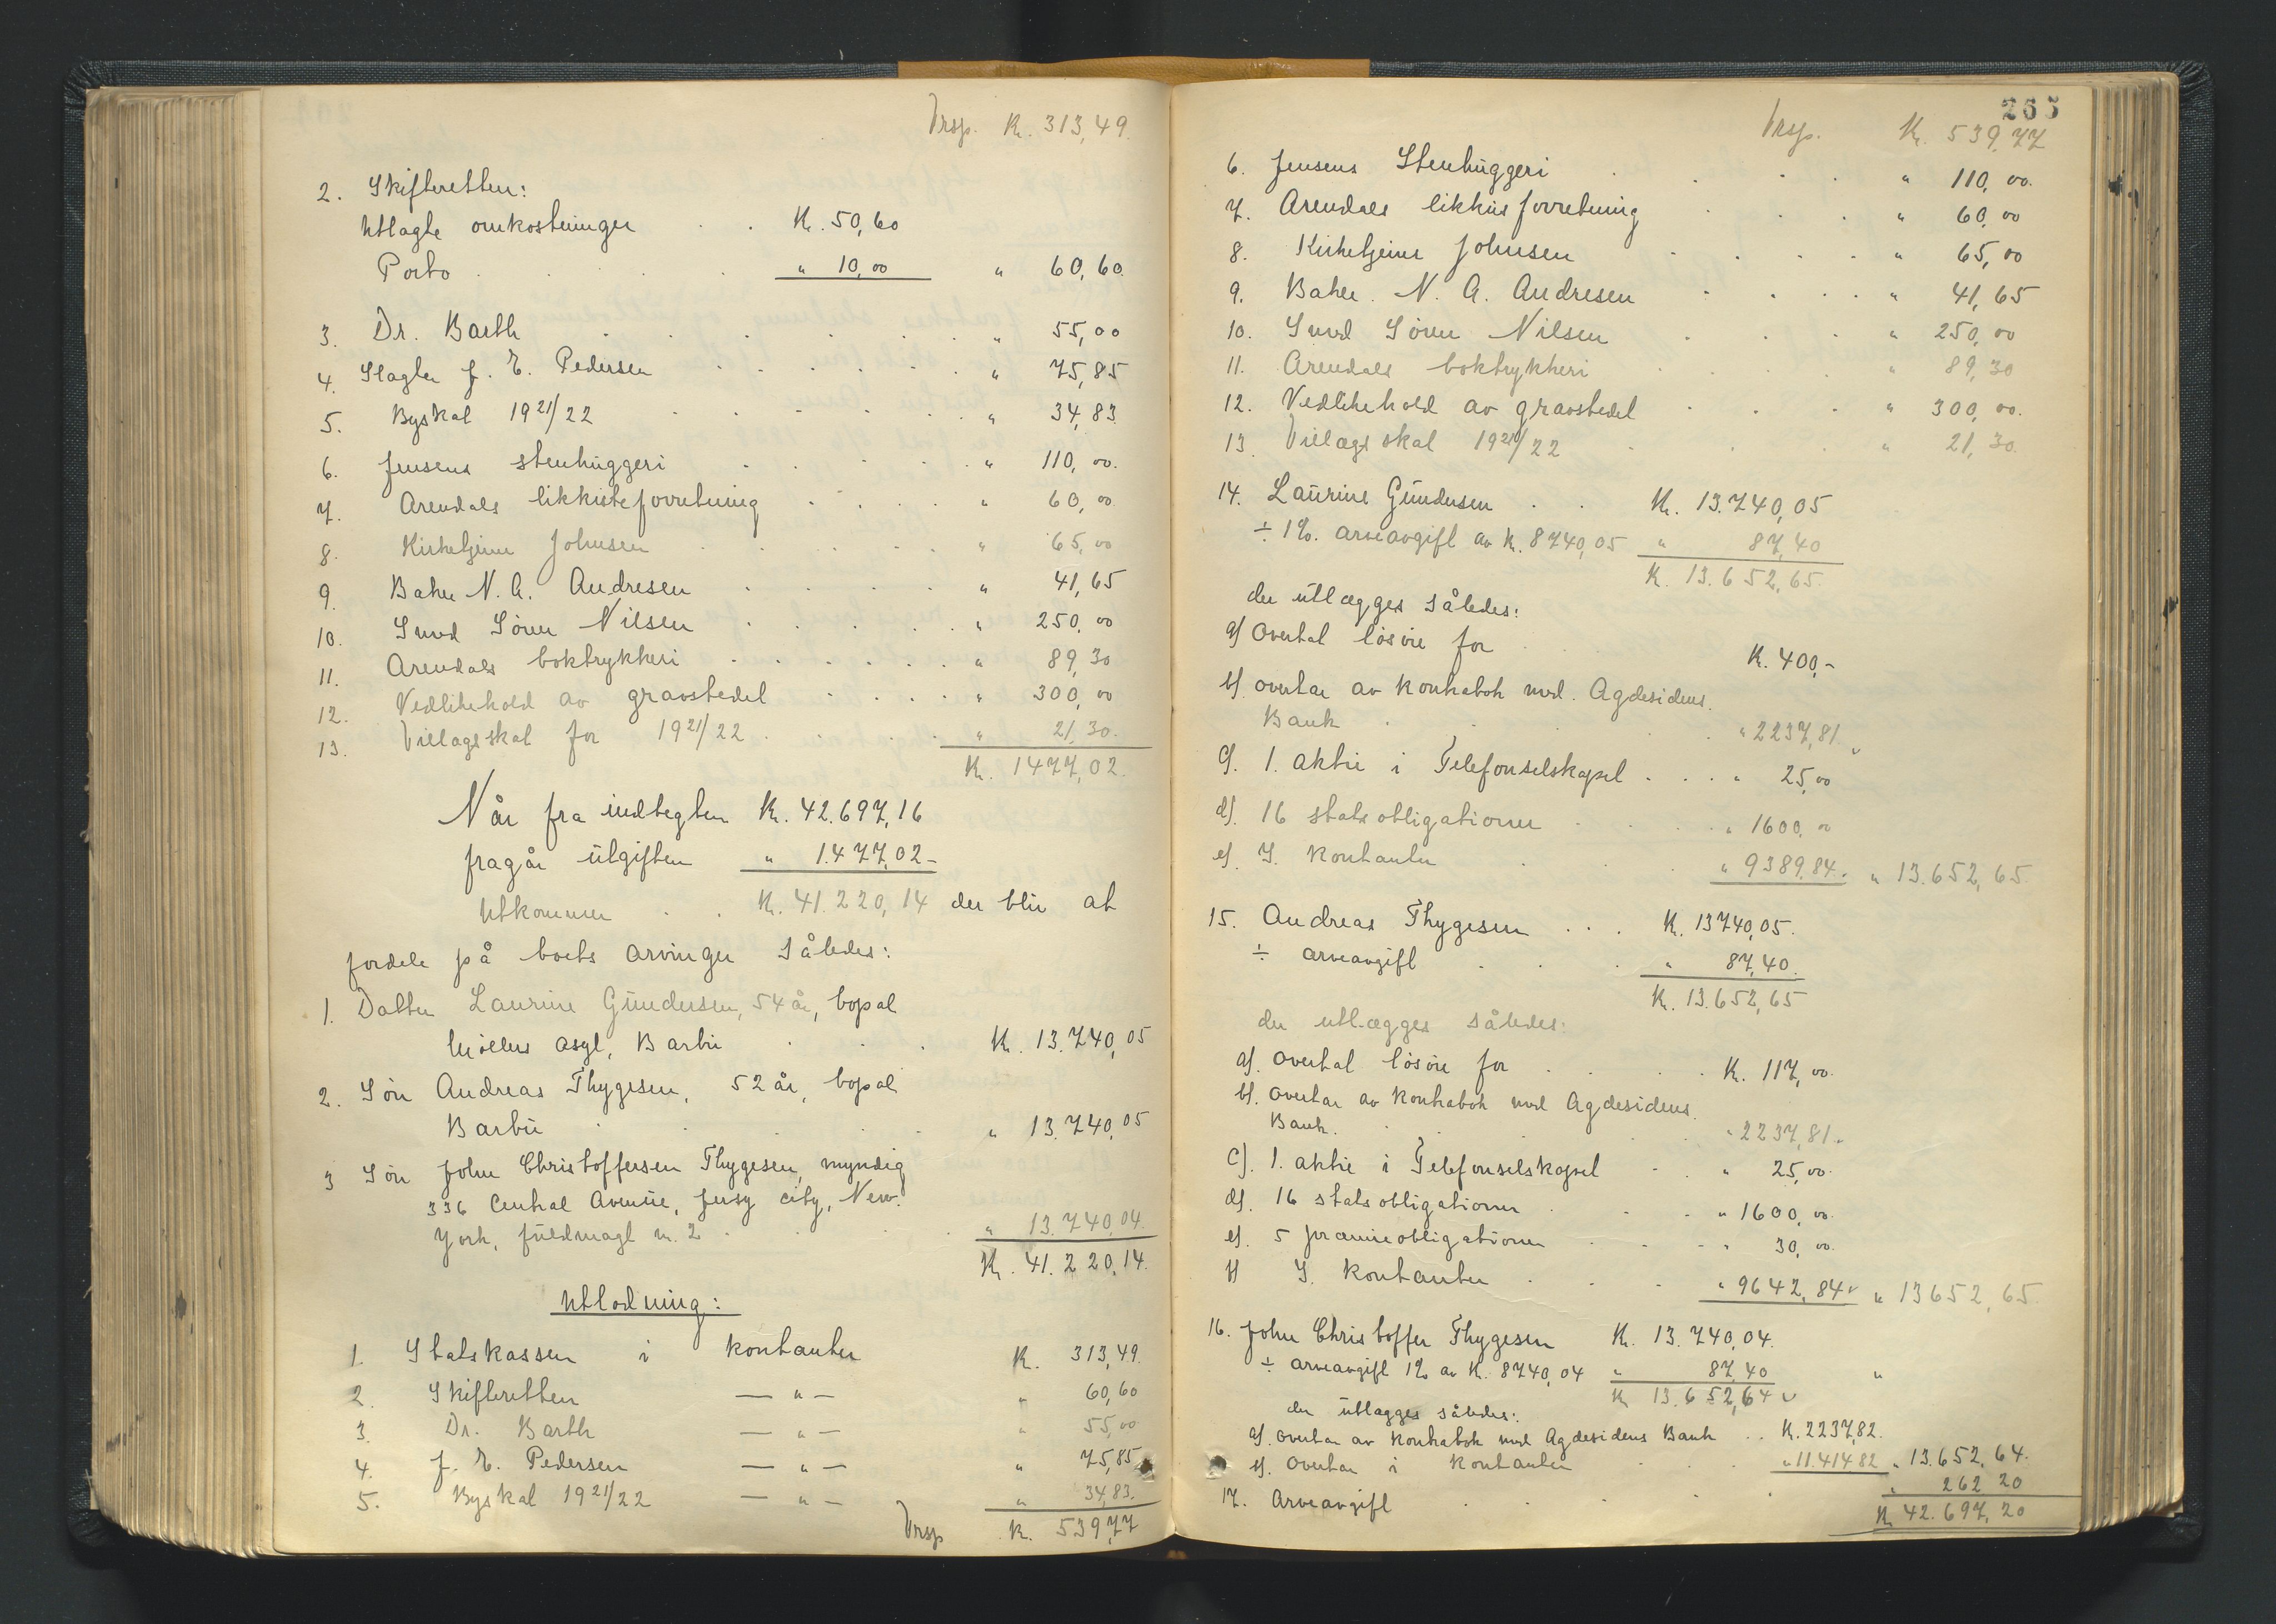 Trsp. Kr. 313,49.
2. Skifteretten:
Utlagte omkostninger . . Kr. 50,60
Porto . . . . " 10,00 " 60,60.
3. Dr. Barth . . . . . . " 55,00
4. Slagter J. E. Pedersen . . . . . . " 75,85
5. Byskat 19 21/22 . . . . . . " 34,83
6. Jensens stenhuggeri . . . . . " 110,00.
7. Arendals likkisteforretning . . . . " 60,00
8. Kirketjener Johnsen . . . . . " 65,00
9. Baker N. A. Andresen . . . . " 41,65
10. Smed Sören Nilsen . . . . . " 250,00
11. Arendals boktrykkeri . . . . . . " 89,30
12. Vedlikehold av gravstedet . . . . " 300,00
13. Tillægsskat for 19 21/22 . . . . " 21,30.
Kr. 1477,02.
Når fra indtægten Kr. 42.697,16
fragår utgiften " 1.477,02-
Utkommer . . Kr. 41.220,14 der blir at
fordele på boets arvinger således:
1. Datter Laurine Gundersen, 54 år, bopæl
asyl, Barbu . . . Kr. 13.740,05
2. Sön Andreas Thygesen, 52 år, bopæl
Barbu . . . . . " 13.740,05
3 Sön John Christoffersen Thygesen, myndig
336 Central Avenue, Jersy city, New.
York, fuldmagt nr. 2 . . . " 13.740,04.
Kr. 41.220,14.
Utlodning:
1. Statskassen i kontanter Kr. 313,49.
2. Skifteretten — " — " 60,60
3. Dr. Barth — " — " 55,00
4. J. E. Pedersen — " — " 75,85
5. Byskat 19 21/22 — " — " 34,83.
Trsp Kr. 539,77
265
Trsp. Kr. 539,77
6. Jensens Stenhuggeri . . . . " 110,00.
7. Arendals likkisteforretning . . . " 60,00
8. Kirketjener Johnsen . . . . " 65,00
9. Baker. N. A. Andresen . . . . " 41,65
10. Smed Sören Nilsen . . . " 250,00
11. Arendals boktrykkeri . . . . " 89,30
12. Vedlikehold av gravstedet . . . " 300,00.
13. Tillægsskat 19 21/22 . . . " 21,30.
14. Laurine Gundersen . . Kr. 13.740,05
÷ 1%. arveavgift av Kr. 8740,05 " 87,40
Kr. 13.652,65.
der utlægges således:
a) Overtat lösöre for . . . Kr. 400,-
b) overtar av kontrabok med. Agdesidens.
Bank . . . . " 2237,81.
c). 1. aktie i Telefonselskapet . . . " 25,00
d). 16 statsobligationer . . . . " 1600,00
e) I. kontanter . . " 9389,84. " 13.652,65.
15. Andreas Thygesen . . . Kr. 13740,05.
÷ arveavgift . . . " 87,40.
Kr. 13.652,65
der utlægges således:
a). overtat lösöre for . . . . Kr. 117,00.
b). overtar av kontrabok med Agdesidens.
Bank. . . . " 2237,81.
c). 1. aktie i Telefonselskapet . . " 25,00.
d). 16 statsobligationer . . . " 1600,00.
e). 5 præmieobligationer . . . " 30,00.
f) I. kontanter . . . " 9642,84 " 13652,65.
16. John Christoffer Thygesen Kr. 13.740,04.
÷ arveavgift 1% av Kr. 8740,04 " 87,40 "
Kr 13.652,64
der utlægges således:
a). overtar av kontrabok med Agdesidens Bank . . Kr. 2237,82.
b). overtar i kontanter . . . " 11.414,82 " 13.652,64.
17. Arveavgift . . . . . " 262 20
Kr 42.697,20